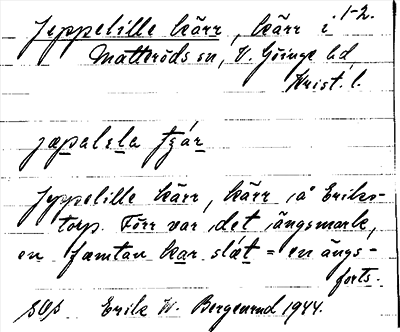 Jeppelille kärr, kärr i 1-2.
Matteröds sn, V. Göinge hd
Krist. l.
jæpalsla tjár
Jeppelille kärr, kärr på Eriks-
torp. Förr var det ängsmark,
en famtan kar slǽt = en ängs-
forts.
SOS Erik W. Bergenrud 1944.